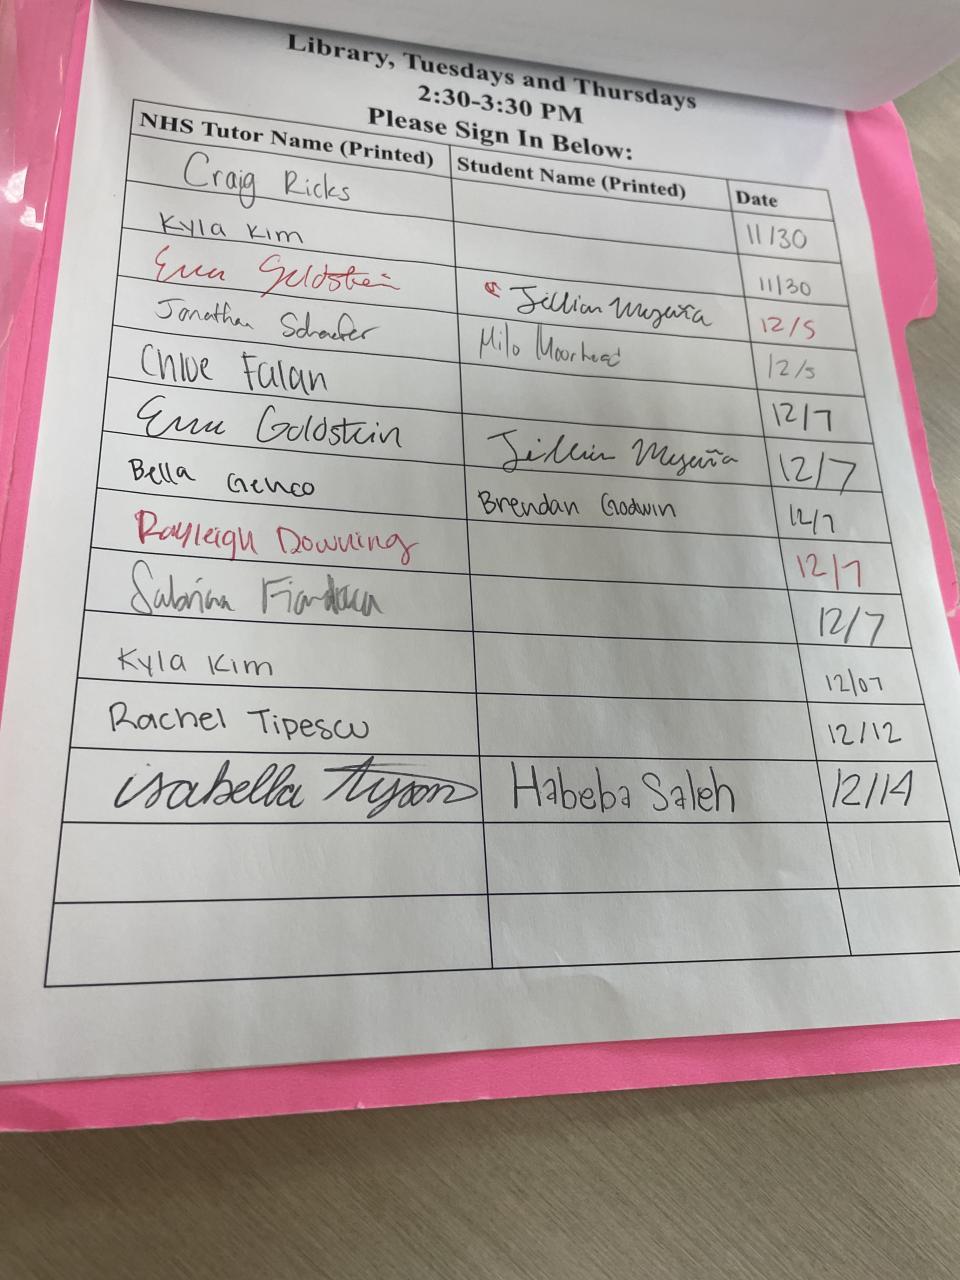 Library, Tuesdays and Thursdays
2:30-3:30 PM
Please Sign In Below:
NHS Tutor Name (Printed) Student Name (Printed) Date
Craig Ricks 11/30
Kyla Kim 11/30
Goldstein Jillian 12/5
Jonathan Schaefer Milo Moorhead 12/5
Chloe Falan 12/7
Goldstein 12/7
Bella Genco Brendan Godwin 12/7
Rayleigh Downing 12/7
Sabrina 12/7
Kyla Kim 12/07
Rachel Tipescu 12/12
isabella tyson Habeba Saleh 12/14